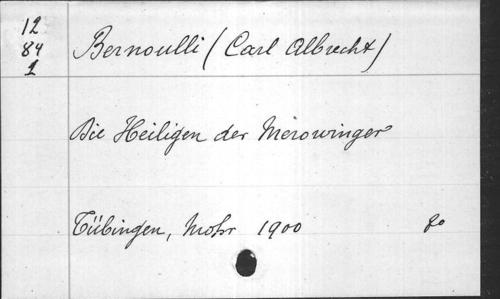 12
84
1
Bernoulli (Carl Albrecht)
Die Heiligen der Merowinger
Tübingen, Mohr 1900 80